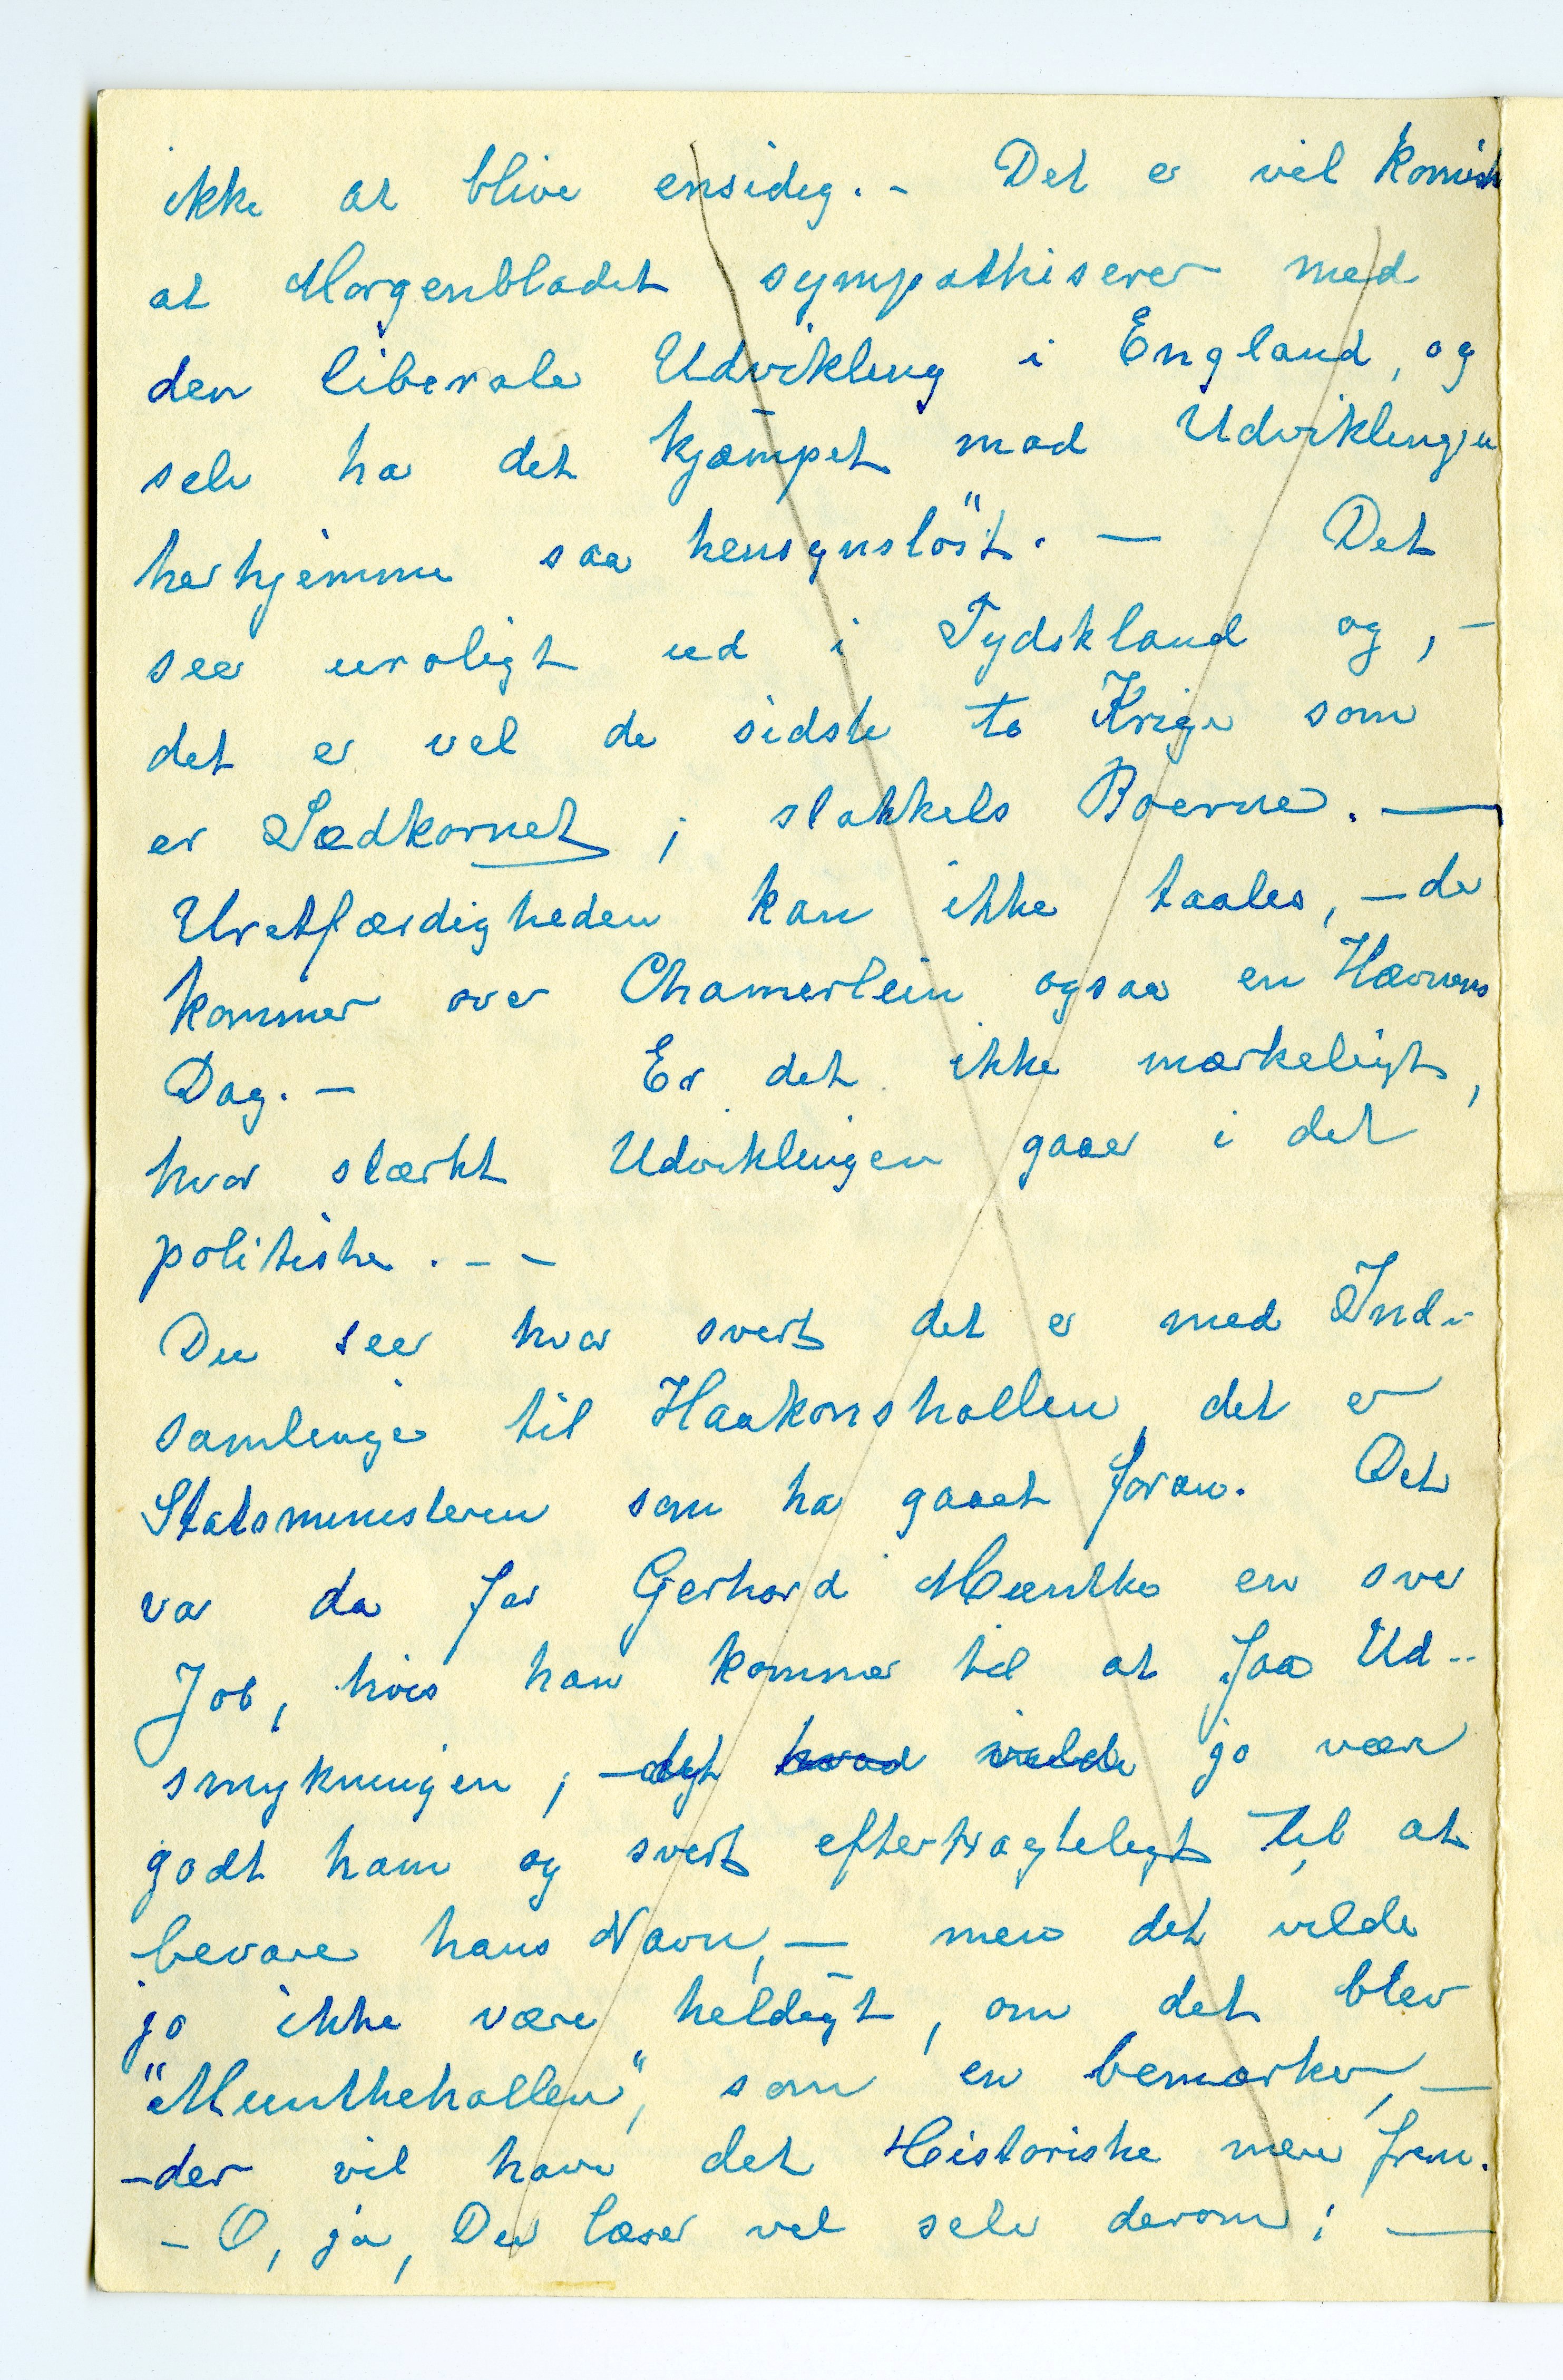 ikke at blive ensidig. - Det er vel komisk
at Morgenbladet sympathiserer med
den liberale Udvikling i England, og
selv ha det kjæmpet mod Udviklingen
herhjemme saa hensynsløst. — Det
seer uroligt ud i Tydskland og, -
det er vel de sidste to Krige som
er Sædkornet; stakkels Boerne. —
Uretfærdigheden kan ikke taales, - der
kommer over Chamerlein ogsaa en Hævnens
Dag. - Er det ikke mærkeligt,
hvor stærkt Udviklingen gaaer i det
politiske. - -
Du seer hvor svert det er med Ind-
samlinger til Haakonshallen, det er
Statsministeren som ha gaaet foran. Det
var da for Gerhard Munthe en svær
Job, hvis han kommer til at faa Ud-
smykningen; - det hvad vilde jo være
godt ham og svert eftertragteligt til at
bevare hans Navn, — men det vilde
jo ikke være heldigt, om det blev
"Munthehallen", som en bemærker, —
- der vil have det Historiske mere frem.
- O, ja, Du læser vel selv derom; —